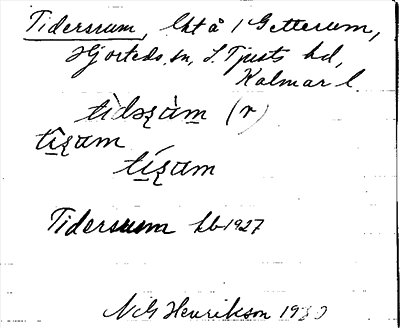 Tidersrum, lht å 1 Getterum,
Hjorteds sn, S. Tjusts hd,
Kalmar l.
tìdəʂàm (r)
tîʂam
tíʂam
Tidersrum hb 1927
Nils Henrikson 1930